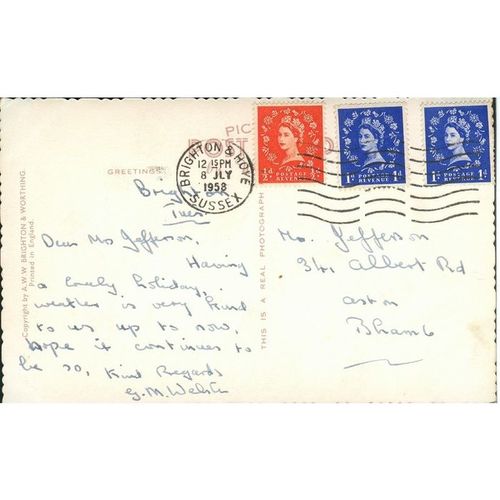 PIC
POST
GREETINGS
BRIGHTON & HOVE
12 15PM
8 JLY
1958
SUSSEX
½d POSTAGE REVENUE ½d
1d POSTAGE REVENUE 1d
1d POSTAGE REVENUE 1d
Brighton
Tues.
Dear Mrs Jefferson,
Having
a lovely holiday,
weather is very kind
to us up to now,
hope it continues to
be so, Kind Regards
G. M. Webster
Copyright by A.W.W. BRIGHTON & WORTHING
Printed in England.
THIS IS A REAL PHOTOGRAPH
Mrs. Jefferson
34, Albert Rd
Aston
Bham 6